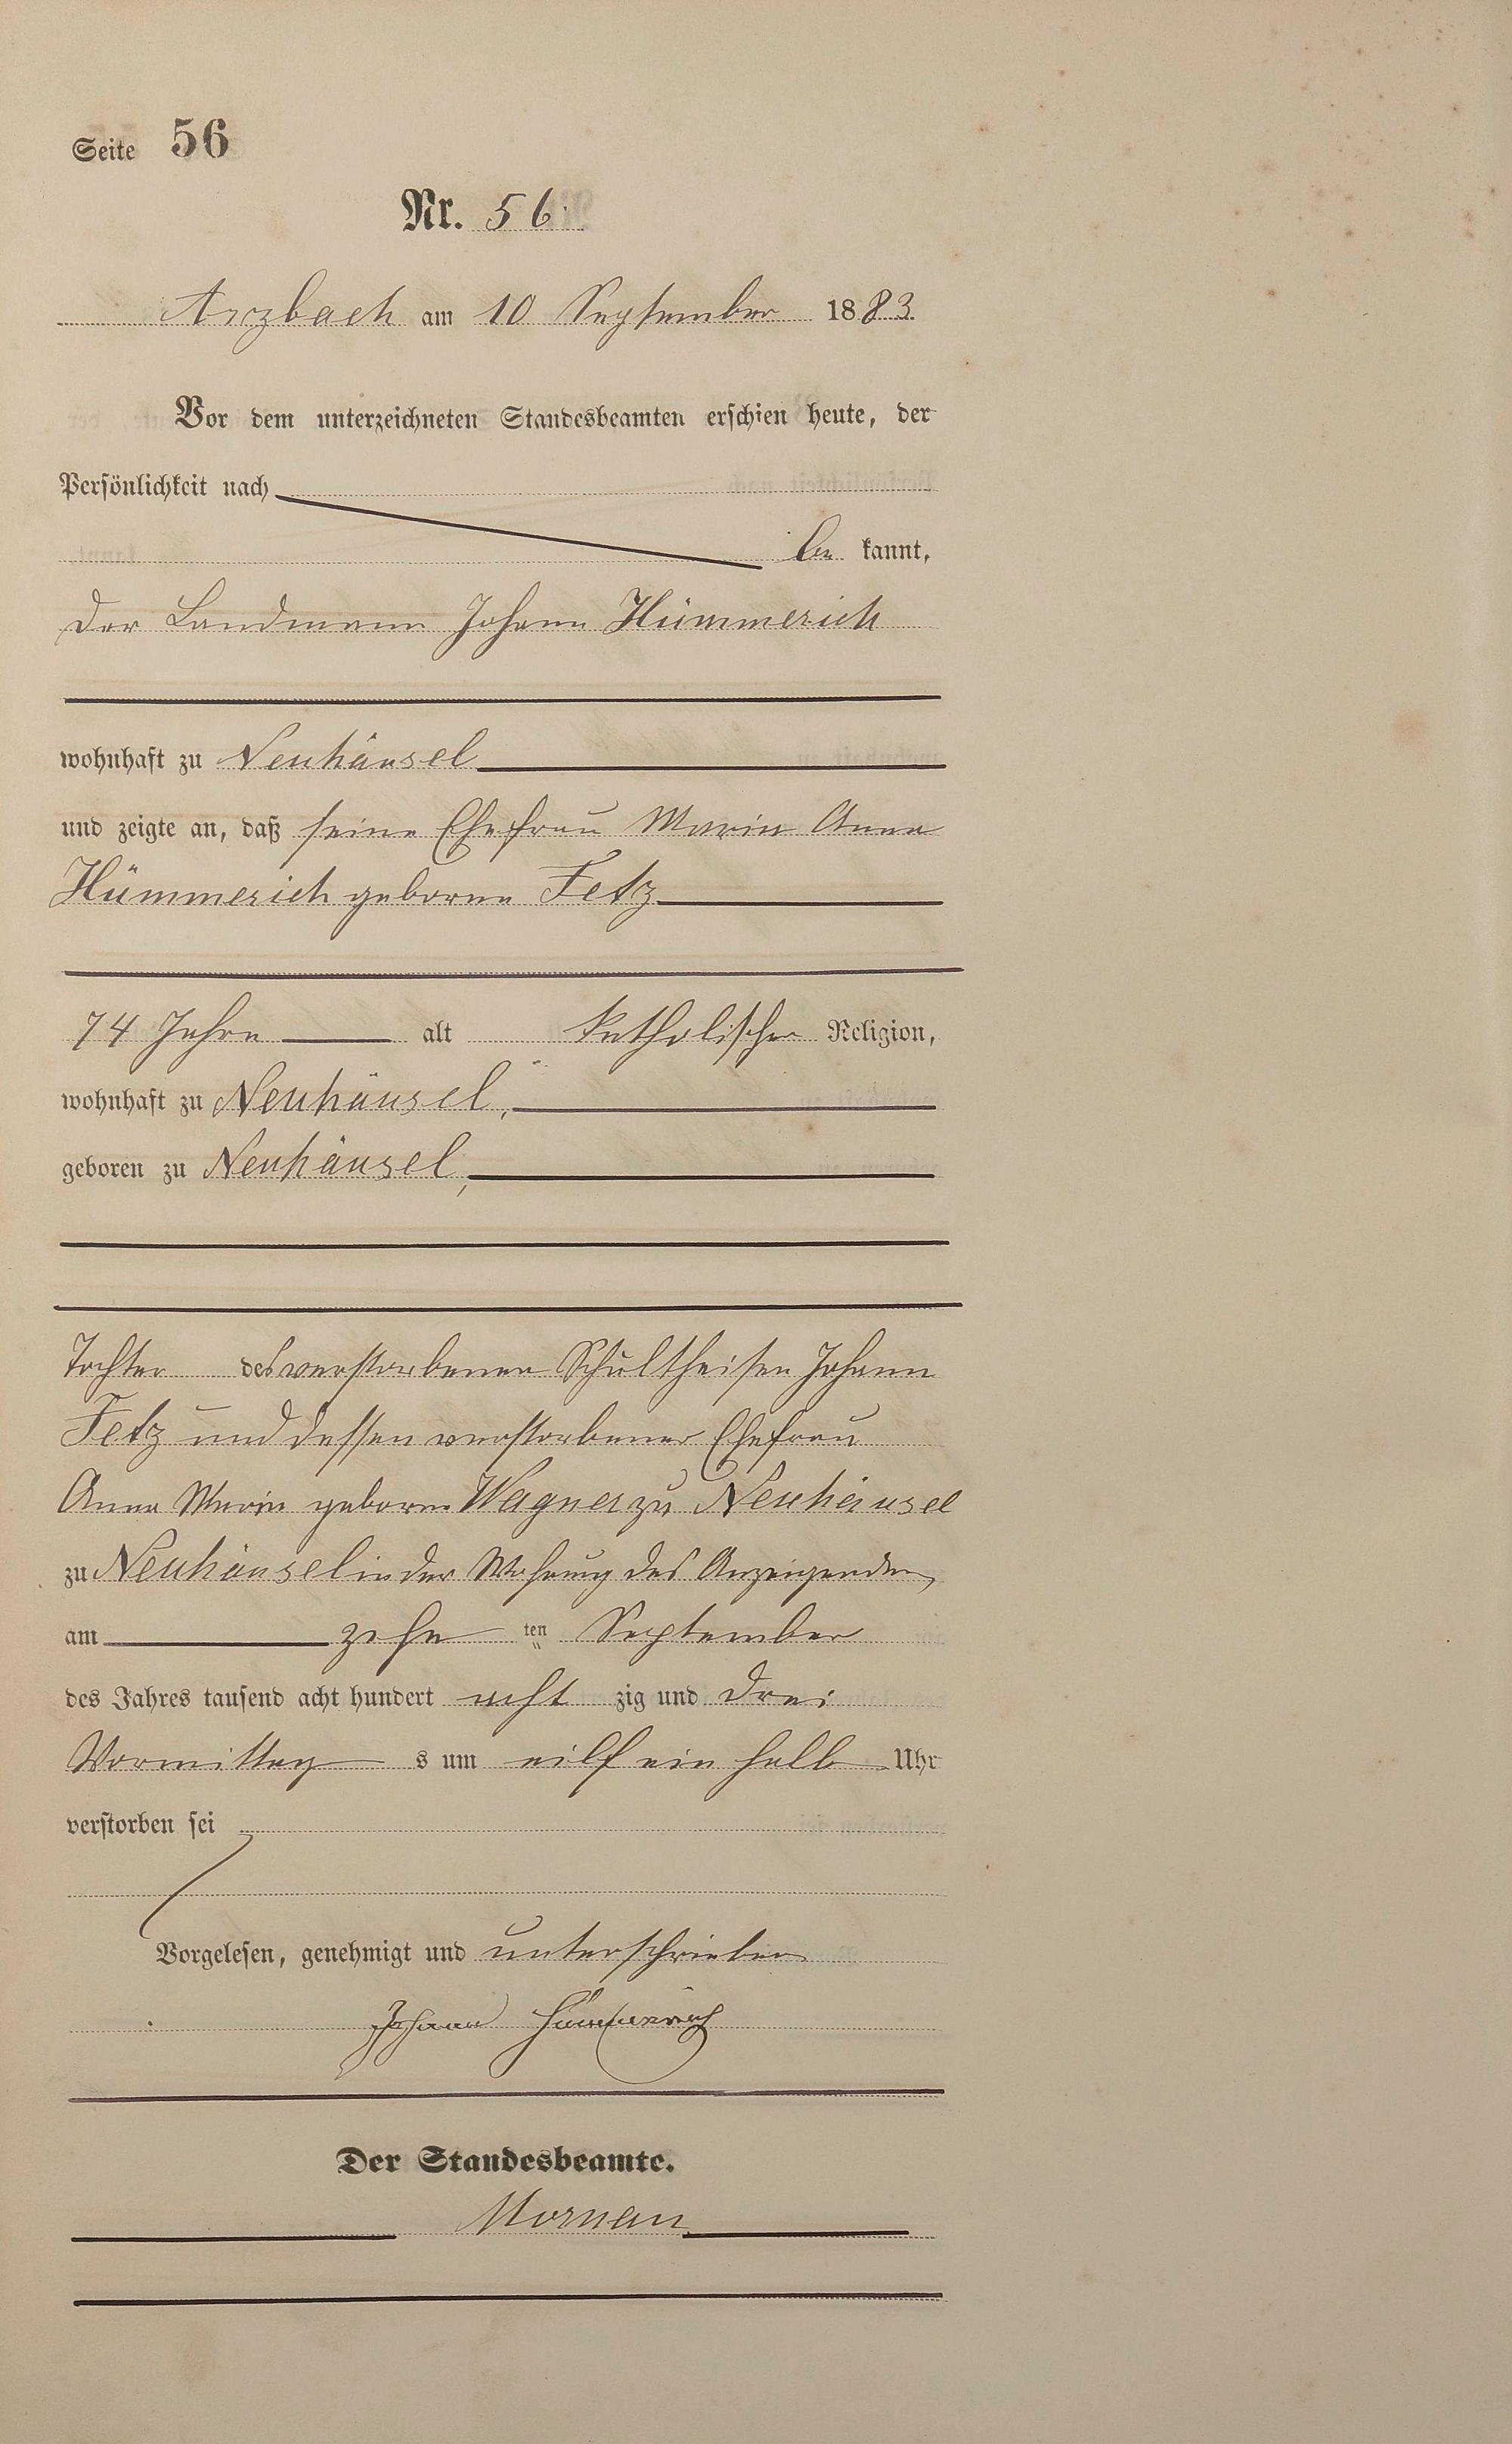 Seite 56
Nr. 56.
Arzbach am 10 September 1883.
Vor dem unterzeichneten Standesbeamten erschien heute, der
Persönlichkeit nach
be kannt,
der Landmann Johann Hümmerich
wohnhaft zu Neuhäusel
und zeigte an, daß seine Ehefrau Maria Anna
Hümmerich geborne Fetz
74 Jahre alt katholischer Religion,
wohnhaft zu Neuhäusel,
geboren zu Neuhäusel,
Tochter des verstorbenen Schultheisen Johann
Fetz und dessen verstorbener Ehefrau
Anna Maria geborne Wagner zu Neuhäusel
zu Neuhäusel in der Wohnung des Anzeigenden,
am zehn ten September
des Jahres tausend acht hundert acht zig und drei
Vormittag s um eilf ein halb Uhr
verstorben sei
Vorgelesen, genehmigt und unterschrieben
Johann Hümmerich
Der Standesbeamte.